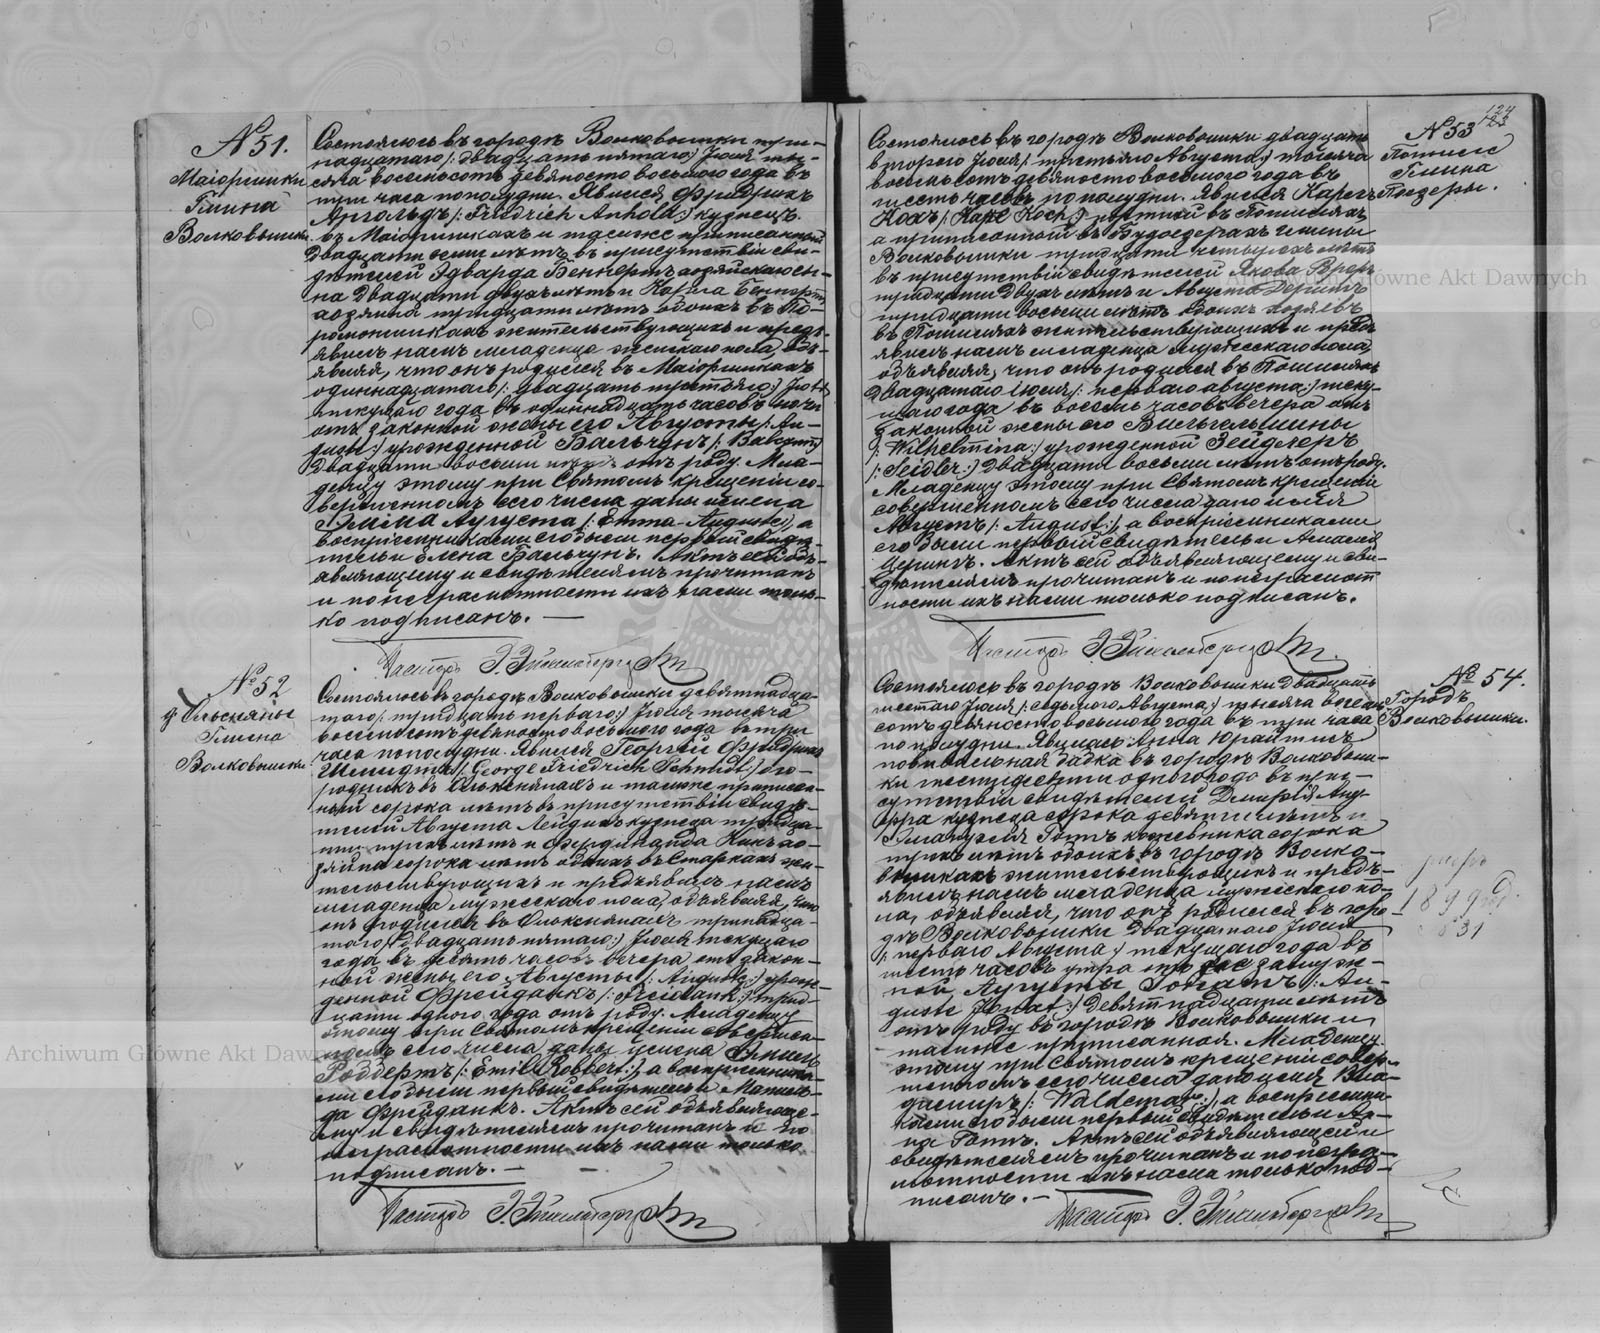 № 51.
Маіоришки
Гмина
Волковышки.
Состоялось въ городѣ Волковышки три-
надцатаго /: двадцать пятаго :/ Іюля ты-
сяча восемьсотъ девяносто восьмого года въ
три часа пополудни. Явился Фридрихъ
Ангольдъ /: Friedrich Anhold :/ кузнецъ
въ Маіоришкахъ и также приписанный
двадцати семи лѣтъ въ присутствіи сви-
дѣтелей Эдварда Беннертъ хозяйскаго сы-
на двадцати двухъ лѣтъ и Карла Беннертъ
хозяина тридцати лѣтъ обоихъ въ По-
жительствующихъ и предъ-
явилъ намъ младенца женскаго пола, объ-
являя, что онъ родился въ Маіоришкахъ
одиннадцатаго /: двадцать третьяго :/ Іюля
текущаго года въ одиннадцать часовъ ночи
отъ законной жены его Августы /: Au-
guste :/ урожденной Бальчунъ
двадцати восьми лѣтъ отъ роду. Мла-
денцу этому при Святомъ крещеніи со-
вершенномъ сего числа даны имена
Эмма Аугуста /: Emma Auguste :/, а
воспріемниками его были первый свидѣ-
тель и Елена Бальчунъ. Актъ сей объ-
являющему и свидѣтелямъ прочитанъ
и по неграмотности ихъ нами толь-
ко подписанъ. —
Пасторъ
№ 52
д. Ольскяны
Гмина
Волковышки.
Состоялось въ городѣ Волковышки девятнадца-
таго /: тридцать перваго :/ Іюля тысяча
восемьсотъ девяносто восьмого года въ три
часа пополудни. Явился Георгій Фридрихъ
Шмидтъ /: George Friedrich Schmidt :/ ого-
родникъ въ Олькснянахъ и также приписан-
ный сорока лѣтъ въ присутствіи свидѣ-
телей Августа Лейдикъ кузнеца тридца-
ти трехъ лѣтъ и Фердинанда Кинъ хо-
зяина сорока лѣтъ обоихъ въ Старкахъ жи-
тельствующихъ и предъявилъ намъ
младенца мужескаго пола, объявляя, что
онъ родился въ Олькснянахъ тринадца-
таго /: двадцать пятаго :/ Іюля текущаго
года въ десять часовъ вечера отъ закон-
ной жены его Августы /: Auguste :/ урож-
денной Фрейданкъ /: Freidank :/ трид-
цати одного года отъ роду. Младенцу
этому при Святомъ крещеніи совершен-
номъ сего числа даны имена Эмиль
Робертъ /: Emil Robbert :/, а воспріемника-
ми его были первый свидѣтель и Матиль-
да Фрейданкъ. Актъ сей объявляюще-
му и свидѣтелямъ прочитанъ и по
неграмотности ихъ нами только
подписанъ. —
Пасторъ
124
№ 53
Гмина
Состоялось въ городѣ Волковышки двадцать
второго Іюля /: третьяго Августа :/ тысяча
восемьсотъ девяносто восьмого года въ
шесть часовъ пополудни. Явился Карлъ
Кохъ /: Karl Koch :/
а приписанный въ Будвецерахъ гмины
Волковышки тридцати четырехъ лѣтъ
въ присутствіи свидѣтелей Якова
тридцати двухъ лѣтъ и Августа
тридцати восьми лѣтъ обоихъ хозяевъ
въ жительствующихъ и предъ-
явилъ намъ младенца мужескаго пола,
объявляя, что онъ родился въ
двадцатаго Іюля /: перваго Августа :/ теку-
щаго года въ восемь часовъ вечера отъ
законной жены его Вильгельмины
/: Wilhelmina :/ урожденной Зейдлеръ
/: Seidler :/ двадцати восьми лѣтъ отъ роду.
Младенцу этому при Святомъ крещеніи
совершенномъ сего числа дано имя
Августъ /: August :/, а воспріемниками
его были первый свидѣтель и Амалія
Актъ сей объявляющему и сви-
дѣтелямъ прочитанъ и по неграмот-
ности ихъ нами только подписанъ.
Пасторъ
№ 54.
Городъ
Волковышки.
Состоялось въ городѣ Волковышки двадцать
шестаго Іюля /: седьмого Августа :/ тысяча восемь-
сотъ девяносто восьмого года въ три часа
пополудни. Явилась Анна Юрайтисъ
повивальная бабка въ городѣ Волковыш-
ки шестидесяти одного года въ при-
сутствіи свидѣтелей Дмитрія
кузнеца сорока девяти лѣтъ и
Эмануеля Готъ кожевника сорока
трехъ лѣтъ обоихъ въ городѣ Волко-
вышкахъ жительствующихъ и предъ-
явилъ намъ младенца мужескаго по-
ла, объявляя, что онъ родился въ горо-
дѣ Волковышки двадцатаго Іюля
/: перваго Августа :/ текущаго года въ
шесть часовъ утра отъ незамуж-
ной Аугусты Іонатъ /: Au-
guste Jonat :/ девятнадцати лѣтъ
отъ роду въ городѣ Волковышки и
также приписанная. Младенцу
этому при Святомъ крещеніи совер-
шенномъ сего числа дано имя Вла-
диміръ /: Waldemar :/, а воспріемни-
ками его были первый свидѣтель и Ан-
на Готъ. Актъ сей объявляющей и
свидѣтелямъ прочитанъ и по негра-
мотности ихъ нами только под-
писанъ. —
Пасторъ
1899
31
Archiwum Główne Akt Dawnych
Archiwum Główne Akt Daw